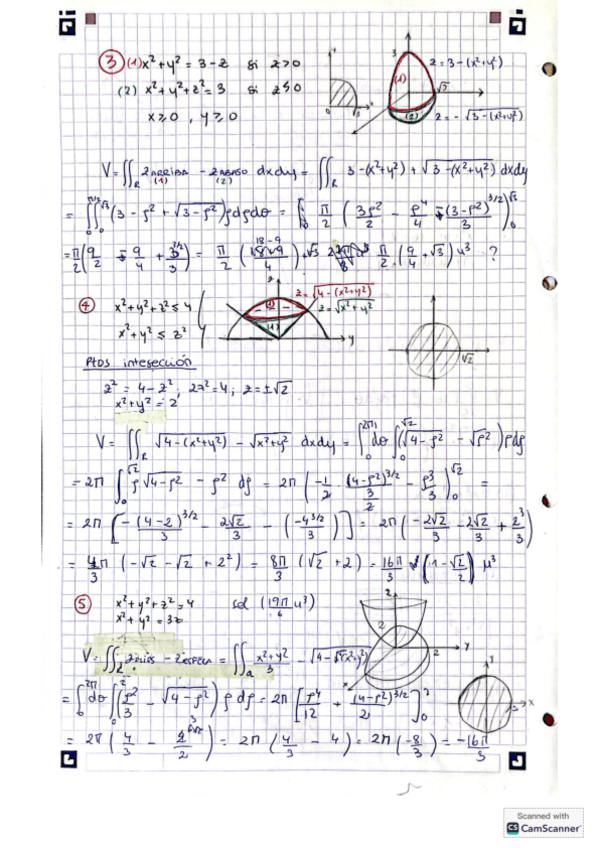 ③ (1) x² + y² = 3 - z si z > 0
(2) x² + y² + z² = 3 si z ≤ 0
x ≥ 0 , y ≥ 0
z = 3 - (x² + y²)
3
(1)
√3
(2)
z = - √(3 - (x² + y²))
V = ∬_R z ARRIBA (1) - z ABAJO (2) dxdy = ∬_R 3 - (x² + y²) + √(3 - (x² + y²)) dxdy
= ∫₀^{π/2} ∫₀^{√3} (3 - ρ² + √(3 - ρ²)) ρ dρ dθ = π/2 (3ρ²/2 - ρ⁴/4 - (3 - ρ²)^{3/2}/3)₀^{√3}
= π/2 (9/2 - 9/4 + 3^{3/2}/3) = π/2 (18 - 9/4) + √3 π/2 (9/4 + √3) u³ ?
④ x² + y² + z² ≤ 4
x² + y² ≤ z²
z = √(4 - (x² + y²))
z = √(x² + y²)
(1)
y
√2
Ptos intersección
z² = 4 - z² , 2z² = 4 ; z = ±√2
x² + y² = 2
V = ∬_R √(4 - (x² + y²)) - √(x² + y²) dxdy = ∫₀^{2π} dθ ∫₀^{√2} (√(4 - ρ²) - √ρ²) ρ dρ
= 2π ∫₀^{√2} ρ√(4 - ρ²) - ρ² dρ = 2π (-1/2 · (4 - ρ²)^{3/2}/(3/2) - ρ³/3)₀^{√2} =
= 2π [-(4 - 2)^{3/2}/3 - 2√2/3 - (-4^{3/2}/3)] = 2π (-2√2/3 - 2√2/3 + 2³/3)
= 4π/3 (-√2 - √2 + 2²) = 8π/3 (√2 + 2) = 16π/3 (1 - √2/2) u³
⑤ x² + y² + z² = 4 sol (19π/6 u³)
x² + y² = 3z
z
2
y
2
x
V = ∬_R = ∬ (x² + y²)/3 - √(4 - (x² + y²))
= ∫₀^{2π} dθ ∫₀² (ρ²/3 - √(4 - ρ²)) ρ dρ = 2π [ρ⁴/12 + (4 - ρ²)^{3/2}/2]₀²
= 2π (4/3 - /2) = 2π (4/3 - 4) = 2π (-8/3) = -16π/3
Scanned with
CS CamScanner